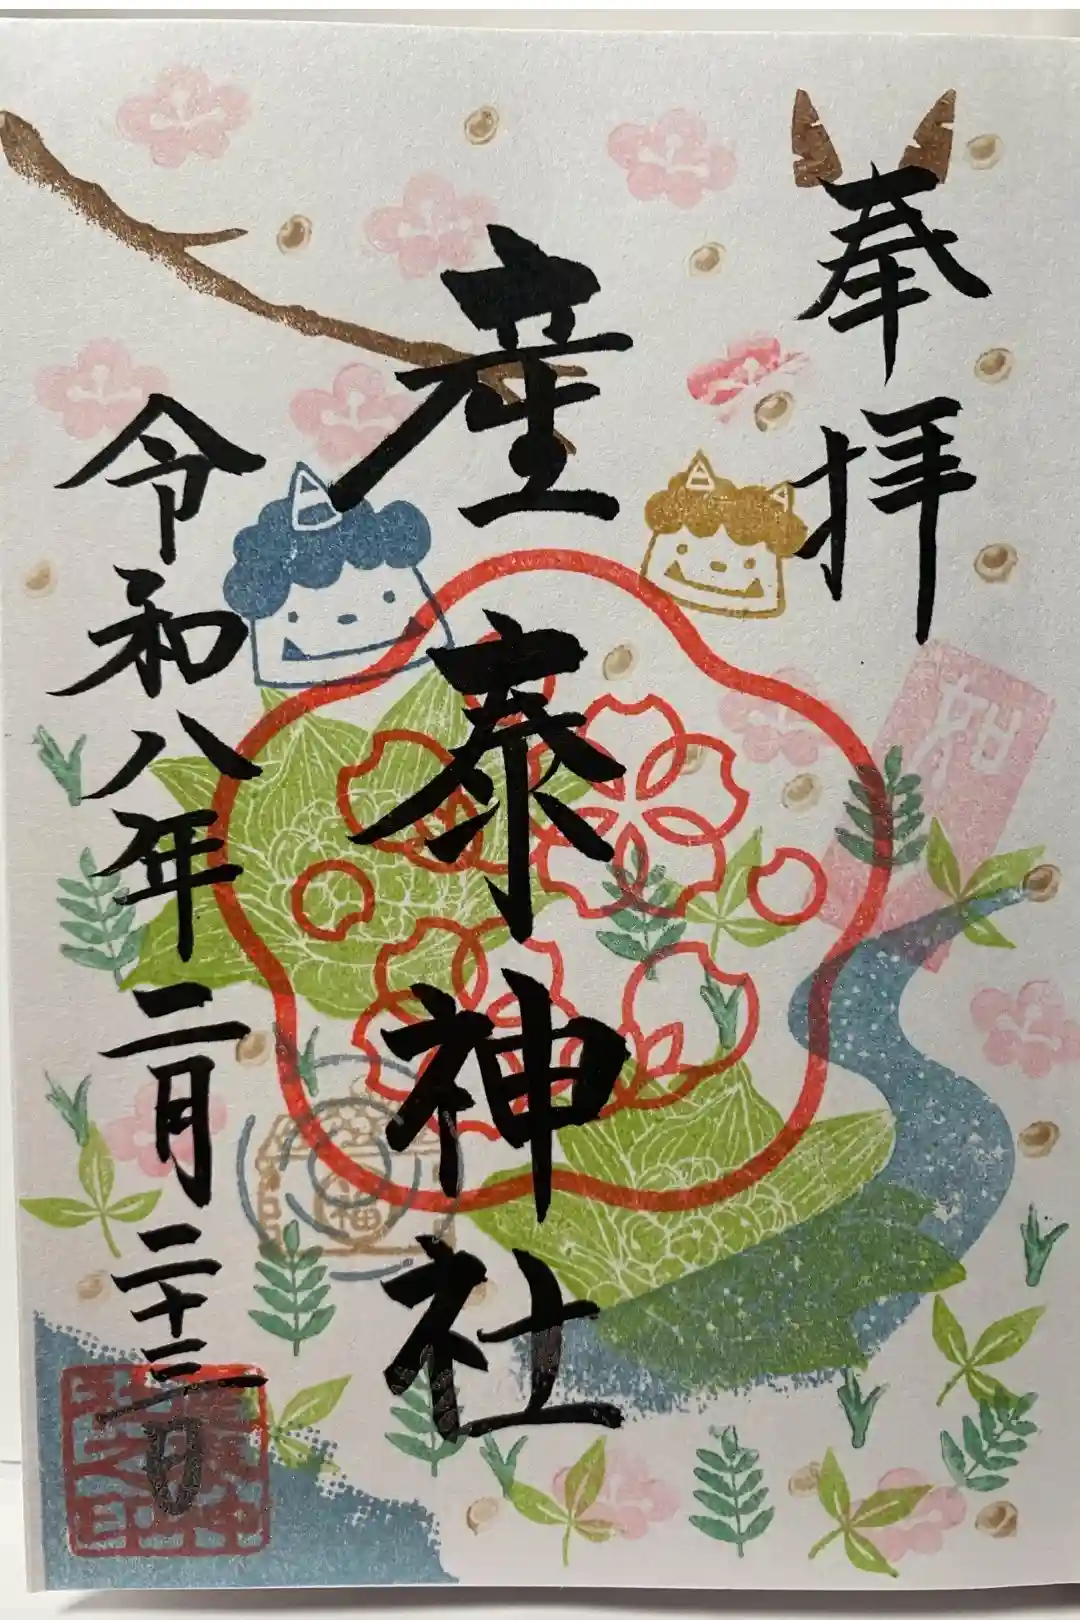 奉拝
産泰神社
令和八年二月二十三日
福